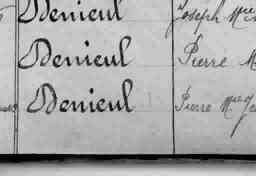 Denieul Joseph Mie
Denieul Pierre M
Denieul Pierre Mie Je